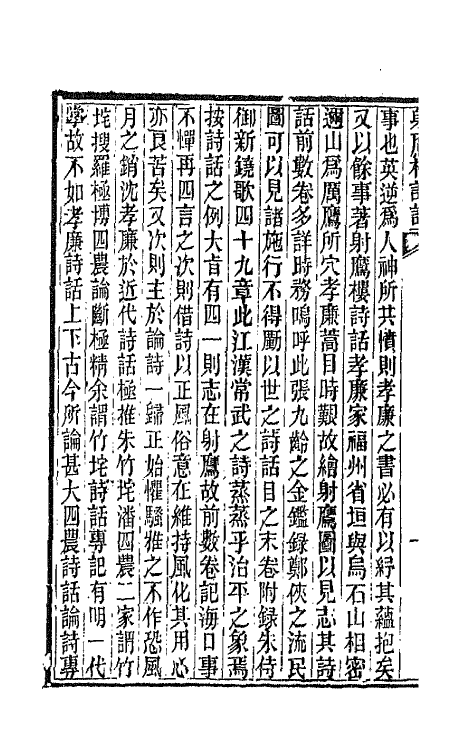 射鷹樓詩話
事也英逆爲人神所共憤則孝廉之書必有以紓其蘊抱矣
又以餘事著射鷹樓詩話孝廉家福州省垣與烏石山相密
邇山爲厲鷹所穴孝廉蒿目時艱故繪射鷹圖以見志其詩
話前數卷多詳時務嗚呼此張九齡之金鑑錄鄭俠之流民
圖可以見諸施行不得勵以世之詩話目之末卷附錄朱侍
御新鐃歌四十九章此江漢常武之詩蒸蒸乎治平之象焉
按詩話之例大旨有四一則志在射鷹故前數卷記海口事
不憚再四言之次則借詩以正風俗意在維持風化其用心
亦良苦矣又次則主於論詩一歸正始懼騷雅之不作恐風
月之銷沈孝廉於近代詩話極推朱竹垞潘四農二家謂竹
垞搜羅極博四農論斷極精余謂竹垞詩話專記有明一代
掌故不如孝廉詩話上下古今所論甚大四農詩話論詩專